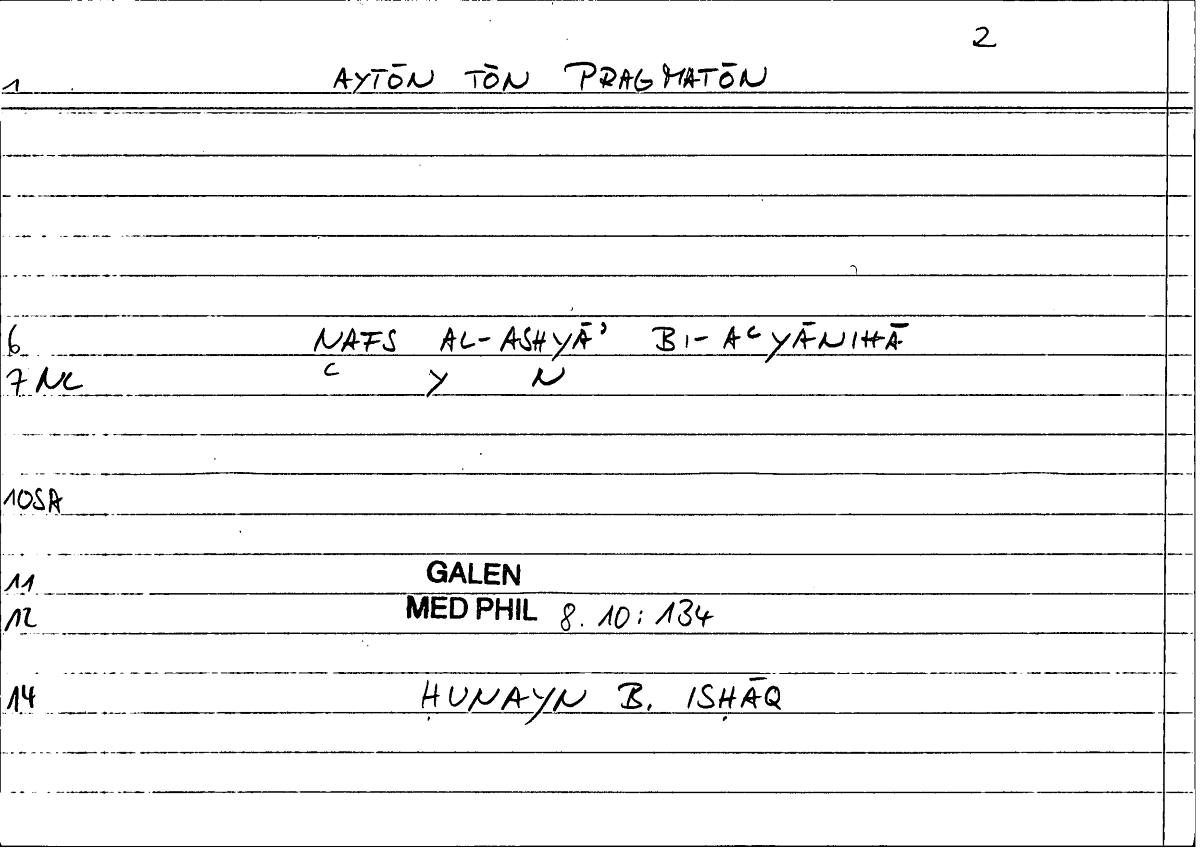 2
1 AYTŌN TŌN PRAGMATŌN
6 NAFS AL-ASHYĀʾ BI-AʿYĀNIHĀ
7 NL ʿ Y N
10SA
11 GALEN
12 MED PHIL 8. 10: 134
14 ḤUNAYN B. ISḤĀQ